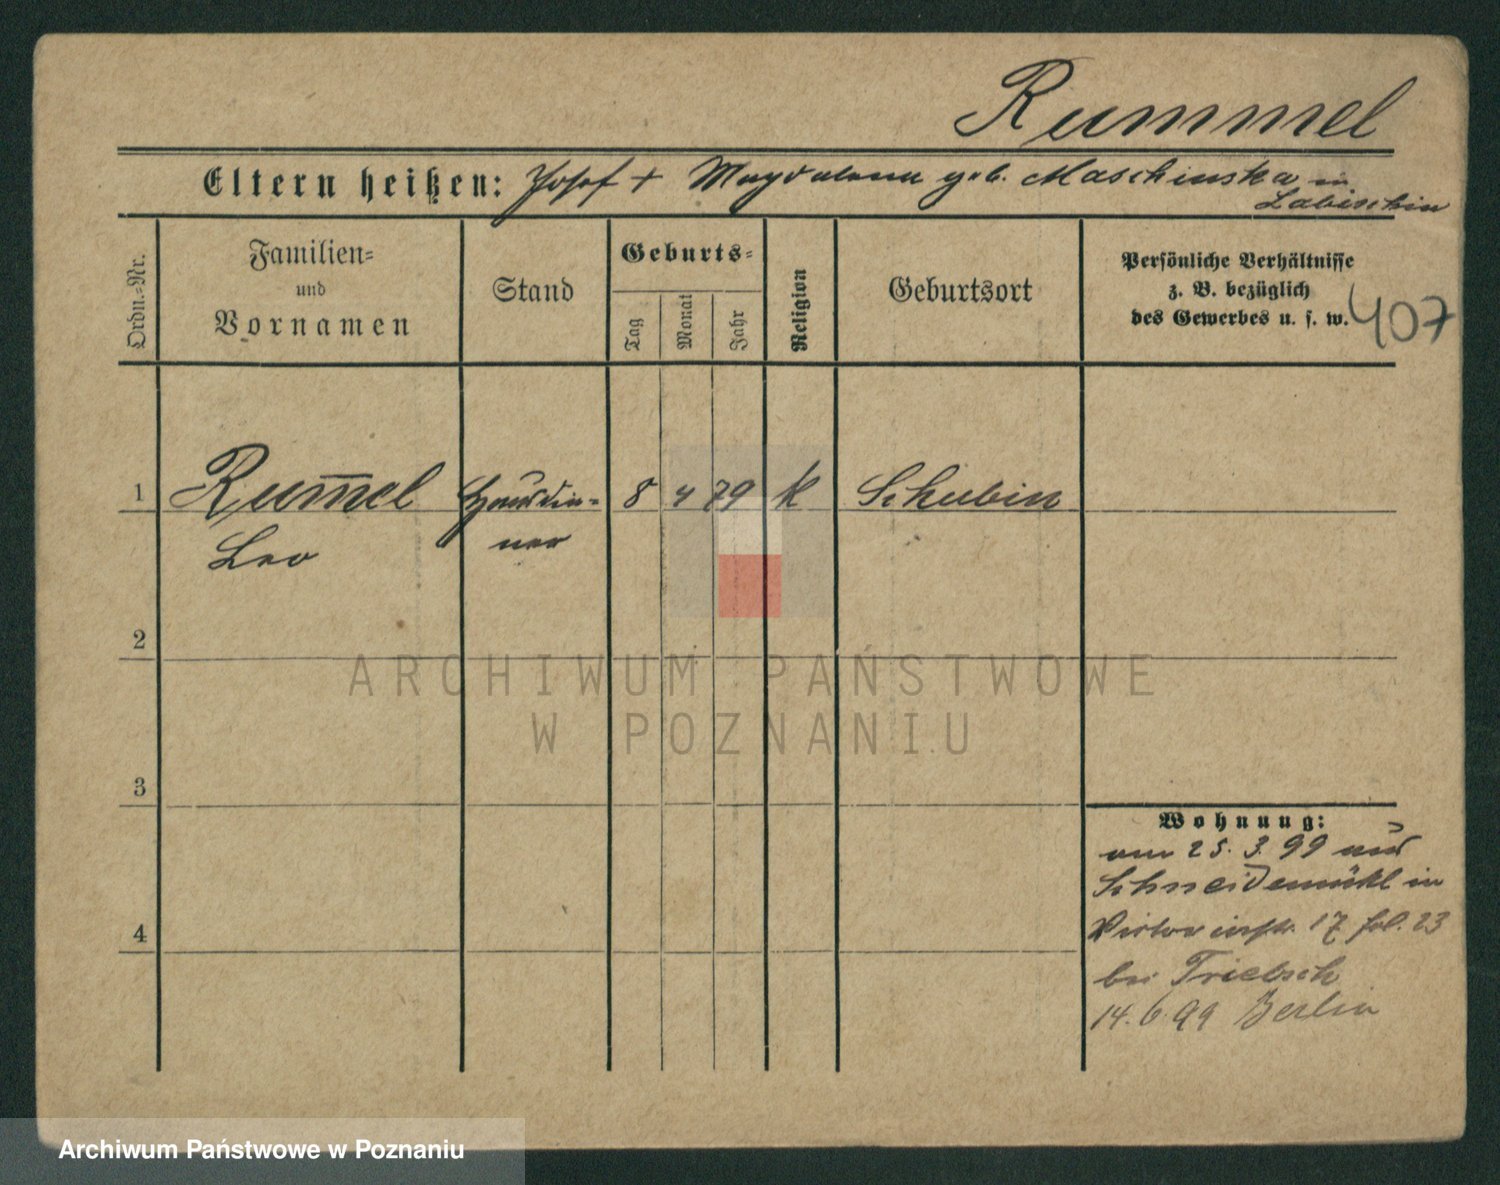 Rummel
Eltern heißen: Josef + Magdalena geb. Maschinska in
Labischin
Ordn.-Nr.
Familien-
und
Vornamen
Stand
Geburts-
Tag
Monat
Jahr
Religion
Geburtsort
Persönliche Verhältnisse
z. B. bezüglich
des Gewerbes u. s. w.
407
1 Rum̅el Hausdie- 8 4 79 k Schubin
Leo ner
2
ARCHIWUM PAŃSTWOWE
W POZNANIU
3
Wohnung:
am 25. 3. 99 aus
Schneidemühl in
Victoriastr. 17 fol. 23
4
bei Triebsch
14. 6. 99 Berlin
Archiwum Państwowe w Poznaniu